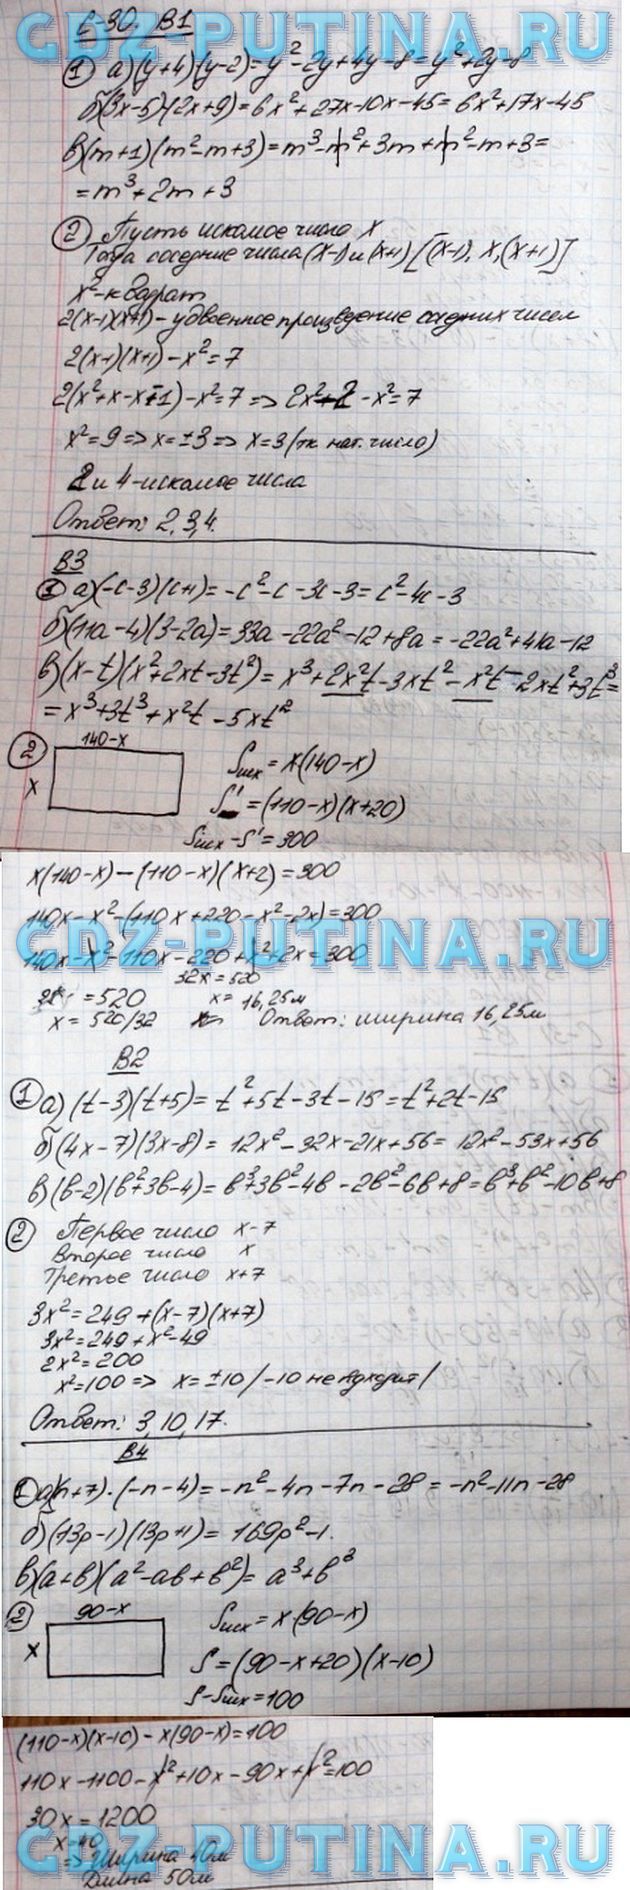 GDZ-PUTINA.RU
С-30. В1
① а)(y+4)(y-2)=y²-2y+4y-8=y²+2y-8
б)(3x-5)(2x+9)=6x²+27x-10x-45=6x²+17x-45
в)(m+1)(m²-m+3)=m³-m²+3m+m²-m+3=
=m³+2m+3
② Пусть искомое число x
Тогда соседние числа (x-1) и (x+1) [(x-1), x, (x+1)]
x²-квадрат
2(x-1)(x+1)-удвоенное произведение соседних чисел
2(x-1)(x+1)-x²=7
2(x²+x-x-1)-x²=7 => 2x²-2-x²=7
x²=9 => x=±3 => x=3 (тк нат. число)
2 и 4-искомое числа
Ответ: 2,3,4.
В3
① а)(-c-3)(c+1)=-c²-c-3c-3=c²-4c-3
б)(11a-4)(3-2a)=33a-22a²-12+8a=-22a²+41a-12
в)(x-t)(x²+2xt-3t²)=x³+2x²t-3xt²-x²t-2xt²+3t³=
=x³+3t³+x²t-5xt²
② 140-x
x
Sисх=x(140-x)
S'=(110-x)(x+20)
Sисх-S'=300
x(140-x)-(110-x)(x+2)=300
140x-x²-(110x+220-x²-2x)=300
GDZ-PUTINA.RU
140x-x²-110x-220+x²+2x=300
32x=520
=520
x=16,25м
x=520/32
Ответ: ширина 16,25м
В2
① а) (t-3)(t+5)=t²+5t-3t-15=t²+2t-15
б)(4x-7)(3x-8)=12x²-32x-21x+56=12x²-53x+56
в)(b-2)(b²+3b-4)=b³+3b²-4b-2b²-6b+8=b³+b²-10b+8
② Первое число x-7
Второе число x
Третье число x+7
3x²=249+(x-7)(x+7)
3x²=249+x²-49
2x²=200
x²=100 => x=±10 /-10 не подходит/
Ответ: 3,10,17.
В4
① а)(n+7)·(-n-4)=-n²-4n-7n-28=-n²-11n-28
б)(13p-1)(13p+1)=169p²-1.
в)(a+b)(a²-ab+b²)=a³+b³
② 90-x
x
Sисх=x(90-x)
S=(90-x+20)(x-10)
S-Sисх=100
(110-x)(x-10)-x(90-x)=100
110x-1100-x²+10x-90x+x²=100
30x=1200
x=40
GDZ-PUTINA.RU
=> Ширина 40м
Длина 50м